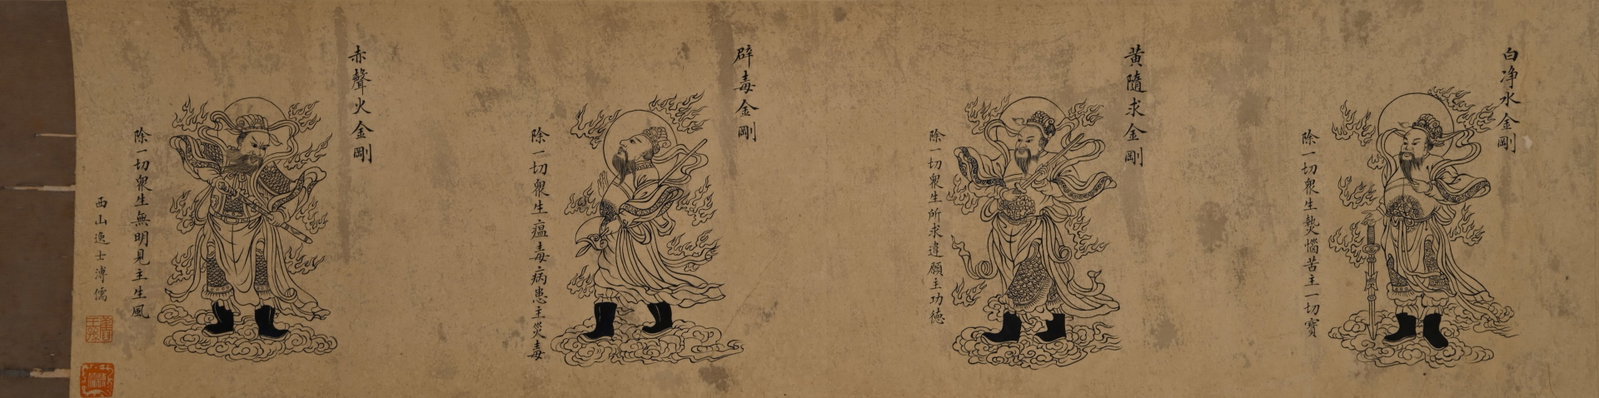 白净水金剛
除一切衆生熱惱苦主一切寶
黃隨求金剛
除一切衆生所求遂願主功德
辟毒金剛
除一切衆生瘟毒病患主災毒
赤聲火金剛
除一切衆生無明見主生風
西山逸士溥儒